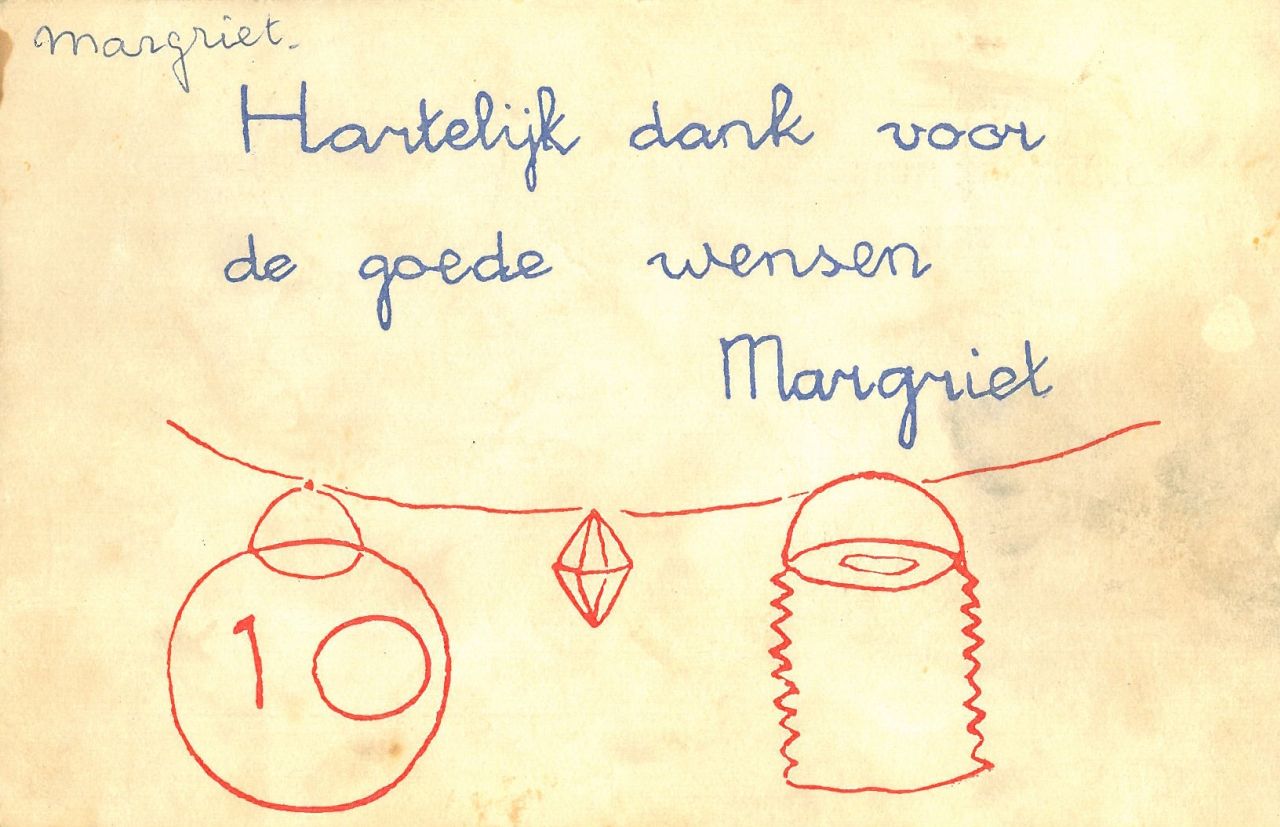 margriet.
Hartelijk dank voor
de goede wensen
Margriet
10